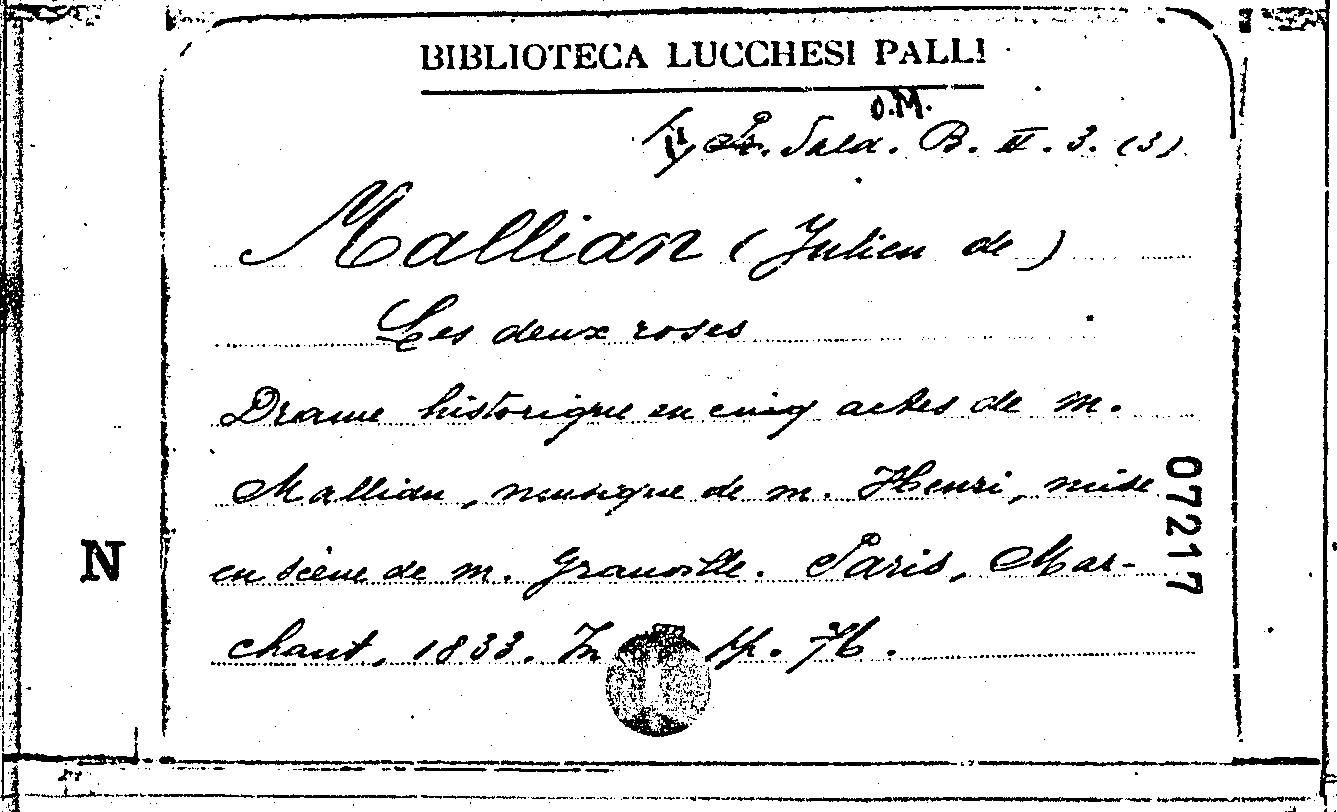 BIBLIOTECA LUCCHESI PALLI
O.M.
Pr. Sala. B. II. 3. (3)
Mallian (Julien de)
Les deux roses
Drame historique en cinq actes de m.
Mallian, musique de m. Henri, mise
en scène de m. Granville. Paris, Mar-
chant, 1833. In pp. 76.
07217
N